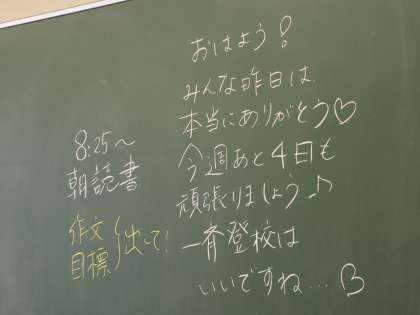 おはよう!
みんな昨日は
本当にありがとう♡
今週あと4日も
頑張りましょう♪
一斉登校は
いいですね...
8:25〜
朝読書
作文
目標
出して!